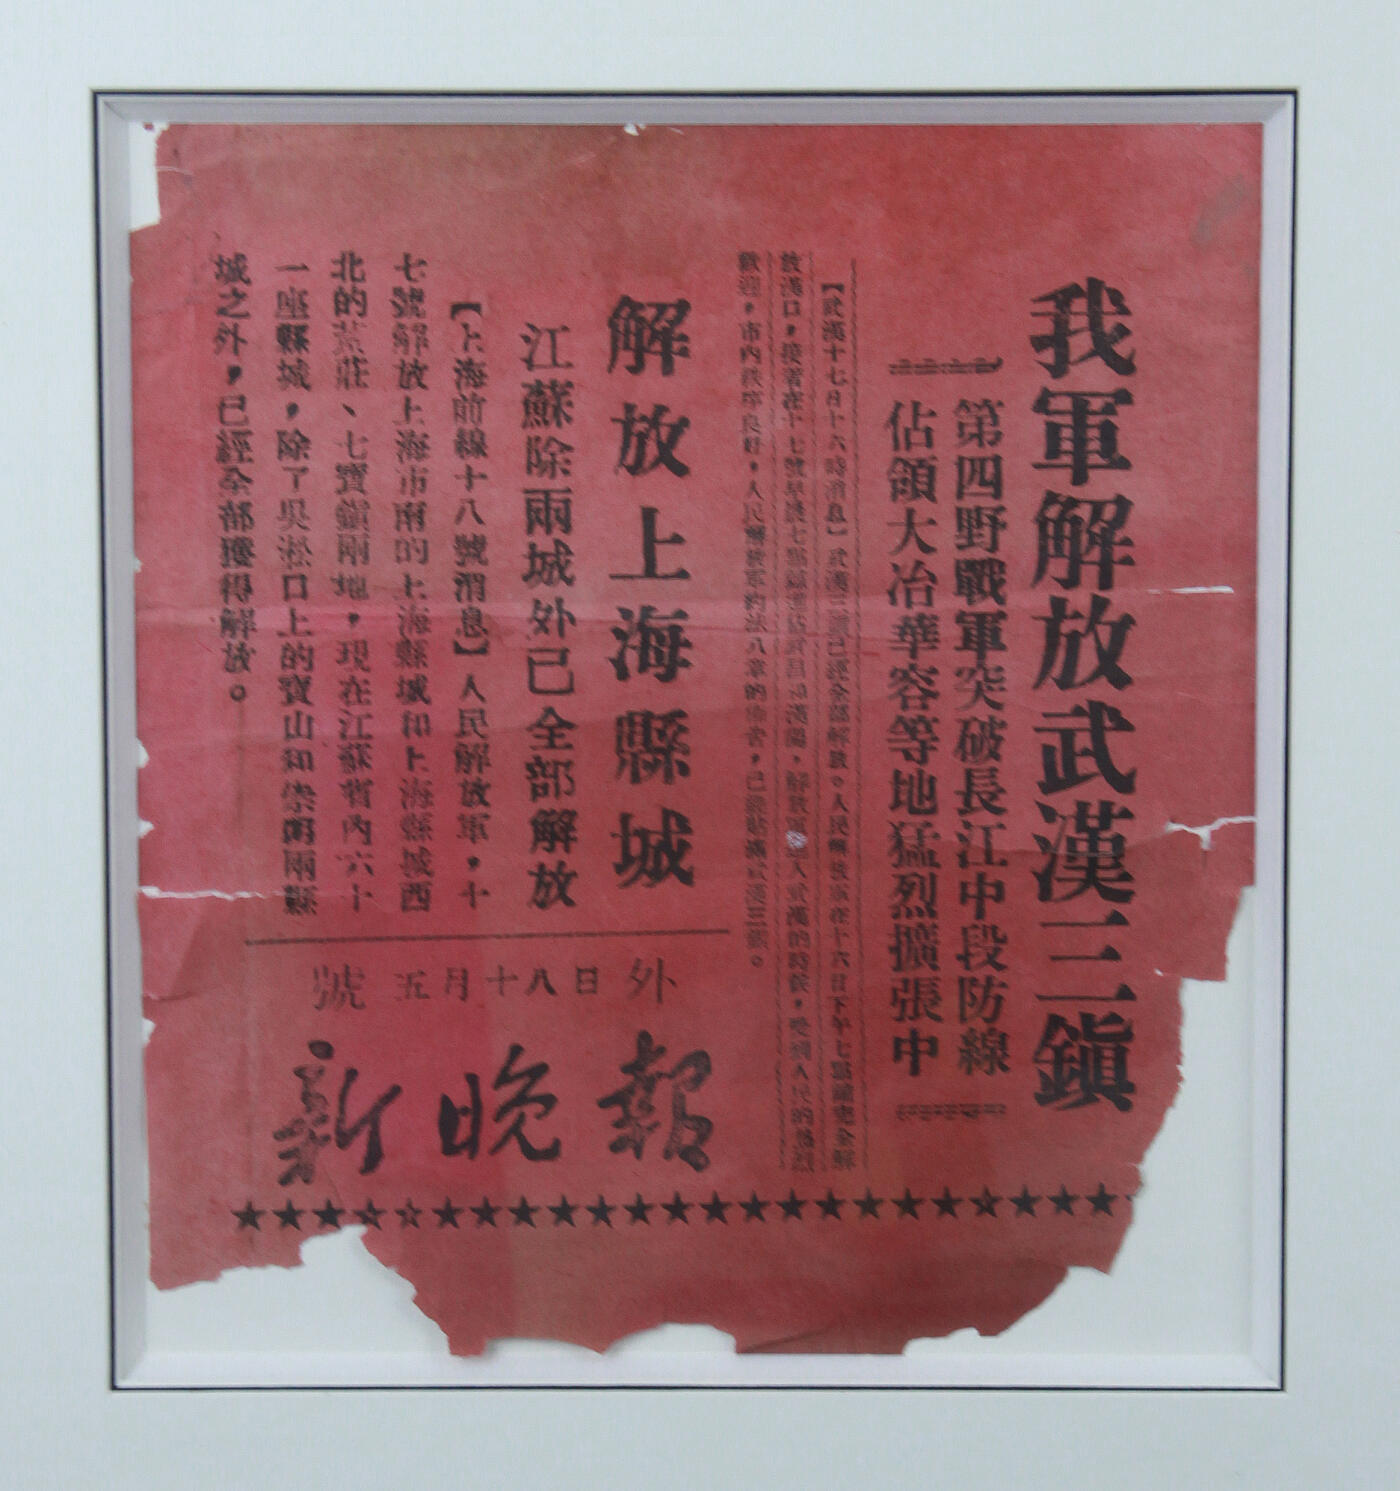 我軍解放武漢三鎭
第四野戰軍突破長江中段防線
佔領大冶華容等地猛烈擴張中
【武漢十七日十六時消息】武漢三鎭已經全部解放。人民解放軍在十六日下午七點鐘完全解
放漢口，接著在十七號早晨七點鐘進佔武昌和漢陽，解放軍進入武漢的時候，受到人民的熱烈
歡迎，市內秩序良好，人民解放軍約法八章的佈告，已經貼滿武漢三鎭。
解放上海縣城
江蘇除兩城外已全部解放
【上海前線十八號消息】人民解放軍，十
七號解放上海市南的上海縣城和上海縣城西
北的莘莊、七寶鎭兩地，現在江蘇省內六十
一座縣城，除了吳淞口上的寶山和崇明兩縣
城之外，已經全部獲得解放。
號 五月十八日 外
新晚報